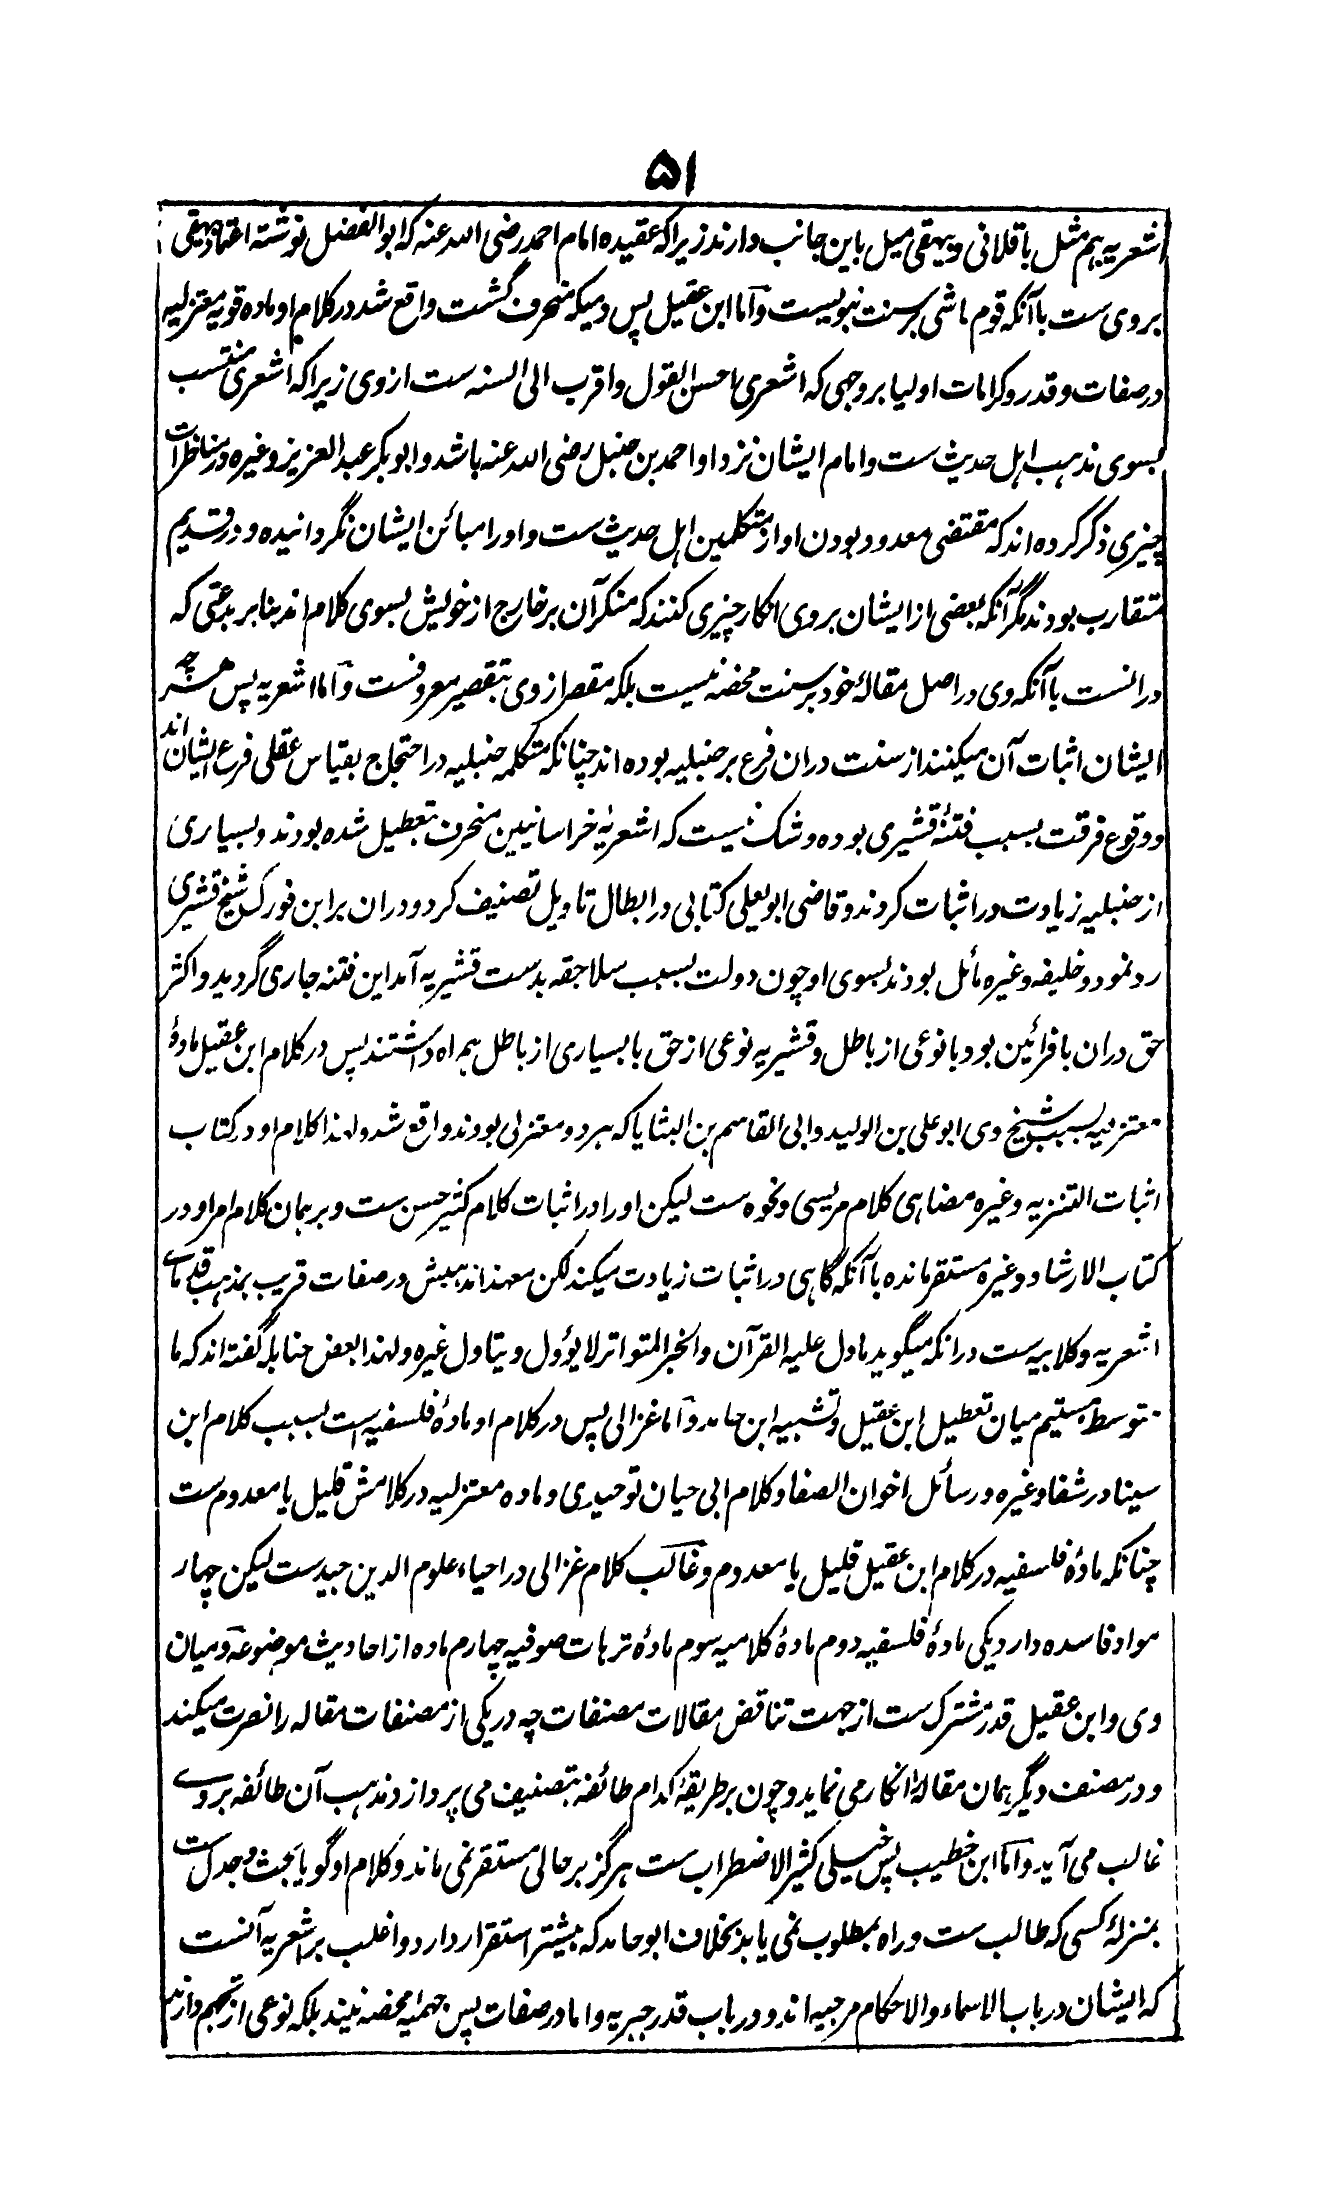 ۵۱
اشعریه هم مثل باقلانی و بیهقی میل باین جانب دارند زیرا که عقیده امام احمد رضی الله عنه که ابو الفضل نوشته اعتماد بیهقی
بروی ست با آنکه قوم ماشی بر سنت نبویست و اما ابن عقیل پس دمیکه منحرف گشت واقع شد در کلام او ماده قویه معتزلیه
در صفات و قدر و کرامات اولیا بر وجهی که اشعری احسن القول و اقرب الی السنه ست از وی زیرا که اشعری منتسب
بسوی مذهب اهل حدیث ست و امام ایشان نزد او احمد بن حنبل رضی الله عنه باشد و ابو بکر عبد العزیز و غیره در مناظرات
چیزی ذکر کرده اند که مقتضی معدود بودن او از متکلمین اهل حدیث ست و او را مبائن ایشان نگردانیده و در قدیم
متقارب بودند مگر آنکه بعضی از ایشان بروی انکار چیزی کنند که منکر آن بر خارج از خویش بسوی کلام اند بنابر بدعتی که
درانست با آنکه وی در اصل مقالهٔ خود بر سنت محضه نیست بلکه مقصر از وی تبقصیر معروفست و اما اشعریه پس هر چه
ایشان اثبات آن میکنند از سنت دران فرع بر حنبلیه بوده اند چنانکه متکلمه حنبلیه در احتجاج بقیاس عقلی فرع ایشان اند
و وقوع فرقت بسبب فتنهٔ قشیری بوده و شک نیست که اشعریهٔ خراسانیین منحرف بتعطیل شده بودند و بسیاری
از حنبلیه زیادت در اثبات کردند و قاضی ابو یعلی کتابی در ابطال تاویل تصنیف کرد و دران بر ابن فورک شیخ قشیری
رد نمود و خلیفه و غیره مائل بودند بسوی او چون دولت بسبب سلاجقه بدست قشیریه آمد این فتنه جاری گردید و اکثر
حق دران با فرائین بود با نوعی از باطل و قشیریه نوعی از حق با بسیاری از باطل همراه داشتند پس در کلام ابن عقیل مادهٔ
معتزلیه بسبب شیخ وی ابو علی بن الولید و ابی القاسم بن البشا یا که هر دو معتزلی بودند واقع شد و لهذا کلام او در کتاب
اثبات التنزیه و غیره مضاهی کلام مریسی و نحوه ست لیکن او را در اثبات کلام کثیر حسن ست و بر همان کلام امر او در
کتاب الارشاد و غیره مستقر مانده با آنکه گاهی در اثبات زیادت میکند لکن معهذا مذهبش در صفات قریب بمذهب قدمای
اشعریه و کلابیه ست درانکه میگوید مادل علیه القرآن والخبر المتواتر لا یؤول و یتاول غیره و لهذا بعض حنابله گفته اند که ما
متوسط هستیم میان تعطیل ابن عقیل و تشبیه ابن حامد و اما غزالی پس در کلام او مادهٔ فلسفیه است بسبب کلام ابن
سینا در شفا و غیره و رسائل اخوان الصفا و کلام ابی حیان توحیدی و ماده معتزلیه در کلامش قلیل یا معدوم ست
چنانکه مادهٔ فلسفیه در کلام ابن عقیل قلیل یا معدوم و غالب کلام غزالی در احیاء علوم الدین جیدست لیکن چهار
مواد فاسده دارد یکی مادهٔ فلسفیه دوم مادهٔ کلامیه سوم مادهٔ ترهات صوفیه چهارم ماده از احادیث موضوعه و میان
وی و ابن عقیل قدر مشترک ست از جهت تناقض مقالات مصنفات چه در یکی از مصنفات مقاله را نصرت میکند
و در مصنف دیگر همان مقاله را انکار می نماید و چون بر طریقهٔ کدام طائفه بتصنیف می پردازد مذهب آن طائفه بروی
غالب می آید و اما ابن خطیب پس خیلی کثیر الاضطراب ست هرگز بر حالی مستقر نمی ماند و کلام او گویا بحث و جدل ست
بمنزلهٔ کسی که طالب ست و راه بمطلوب نمی یابد بخلاف ابو حامد که بیشتر استقرار دارد و اغلب بر اشعریه آنست
که ایشان در باب الاسماء و الاحکام مرجیه اند و در باب قدر جبریه و اما در صفات پس جهمیه محضه نیند بلکه نوعی از تجهم دارند